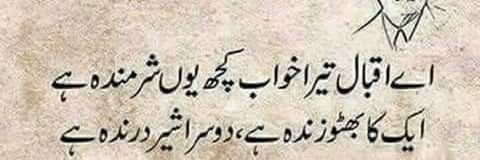 اے اقبال تیرا خواب کچھ یوں شرمندہ ہے
ایک کا بھٹو زندہ ہے، دوسرا شیر درندہ ہے